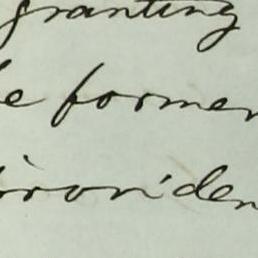 granting
e former
providen